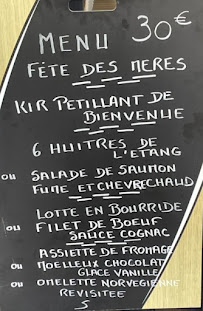 MENU 30€
FÊTE DES MERES
KIR PETILLANT DE
BIENVENUE
6 HUITRES DE
L'ETANG
ou SALADE DE SAUMON
FUME ET CHEVRE CHAUD
LOTTE EN BOURRIDE
ou FILET DE BOEUF
SAUCE COGNAC
ASSIETTE DE FROMAGE
ou MOELLEUX CHOCOLAT
GLACE VANILLE
ou OMELETTE NORVEGIENNE
REVISITEE